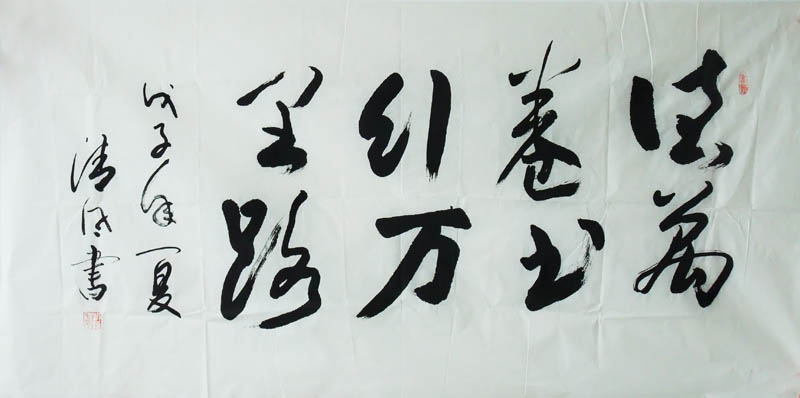 读萬
卷书
行万
里路
戊子年夏
清書